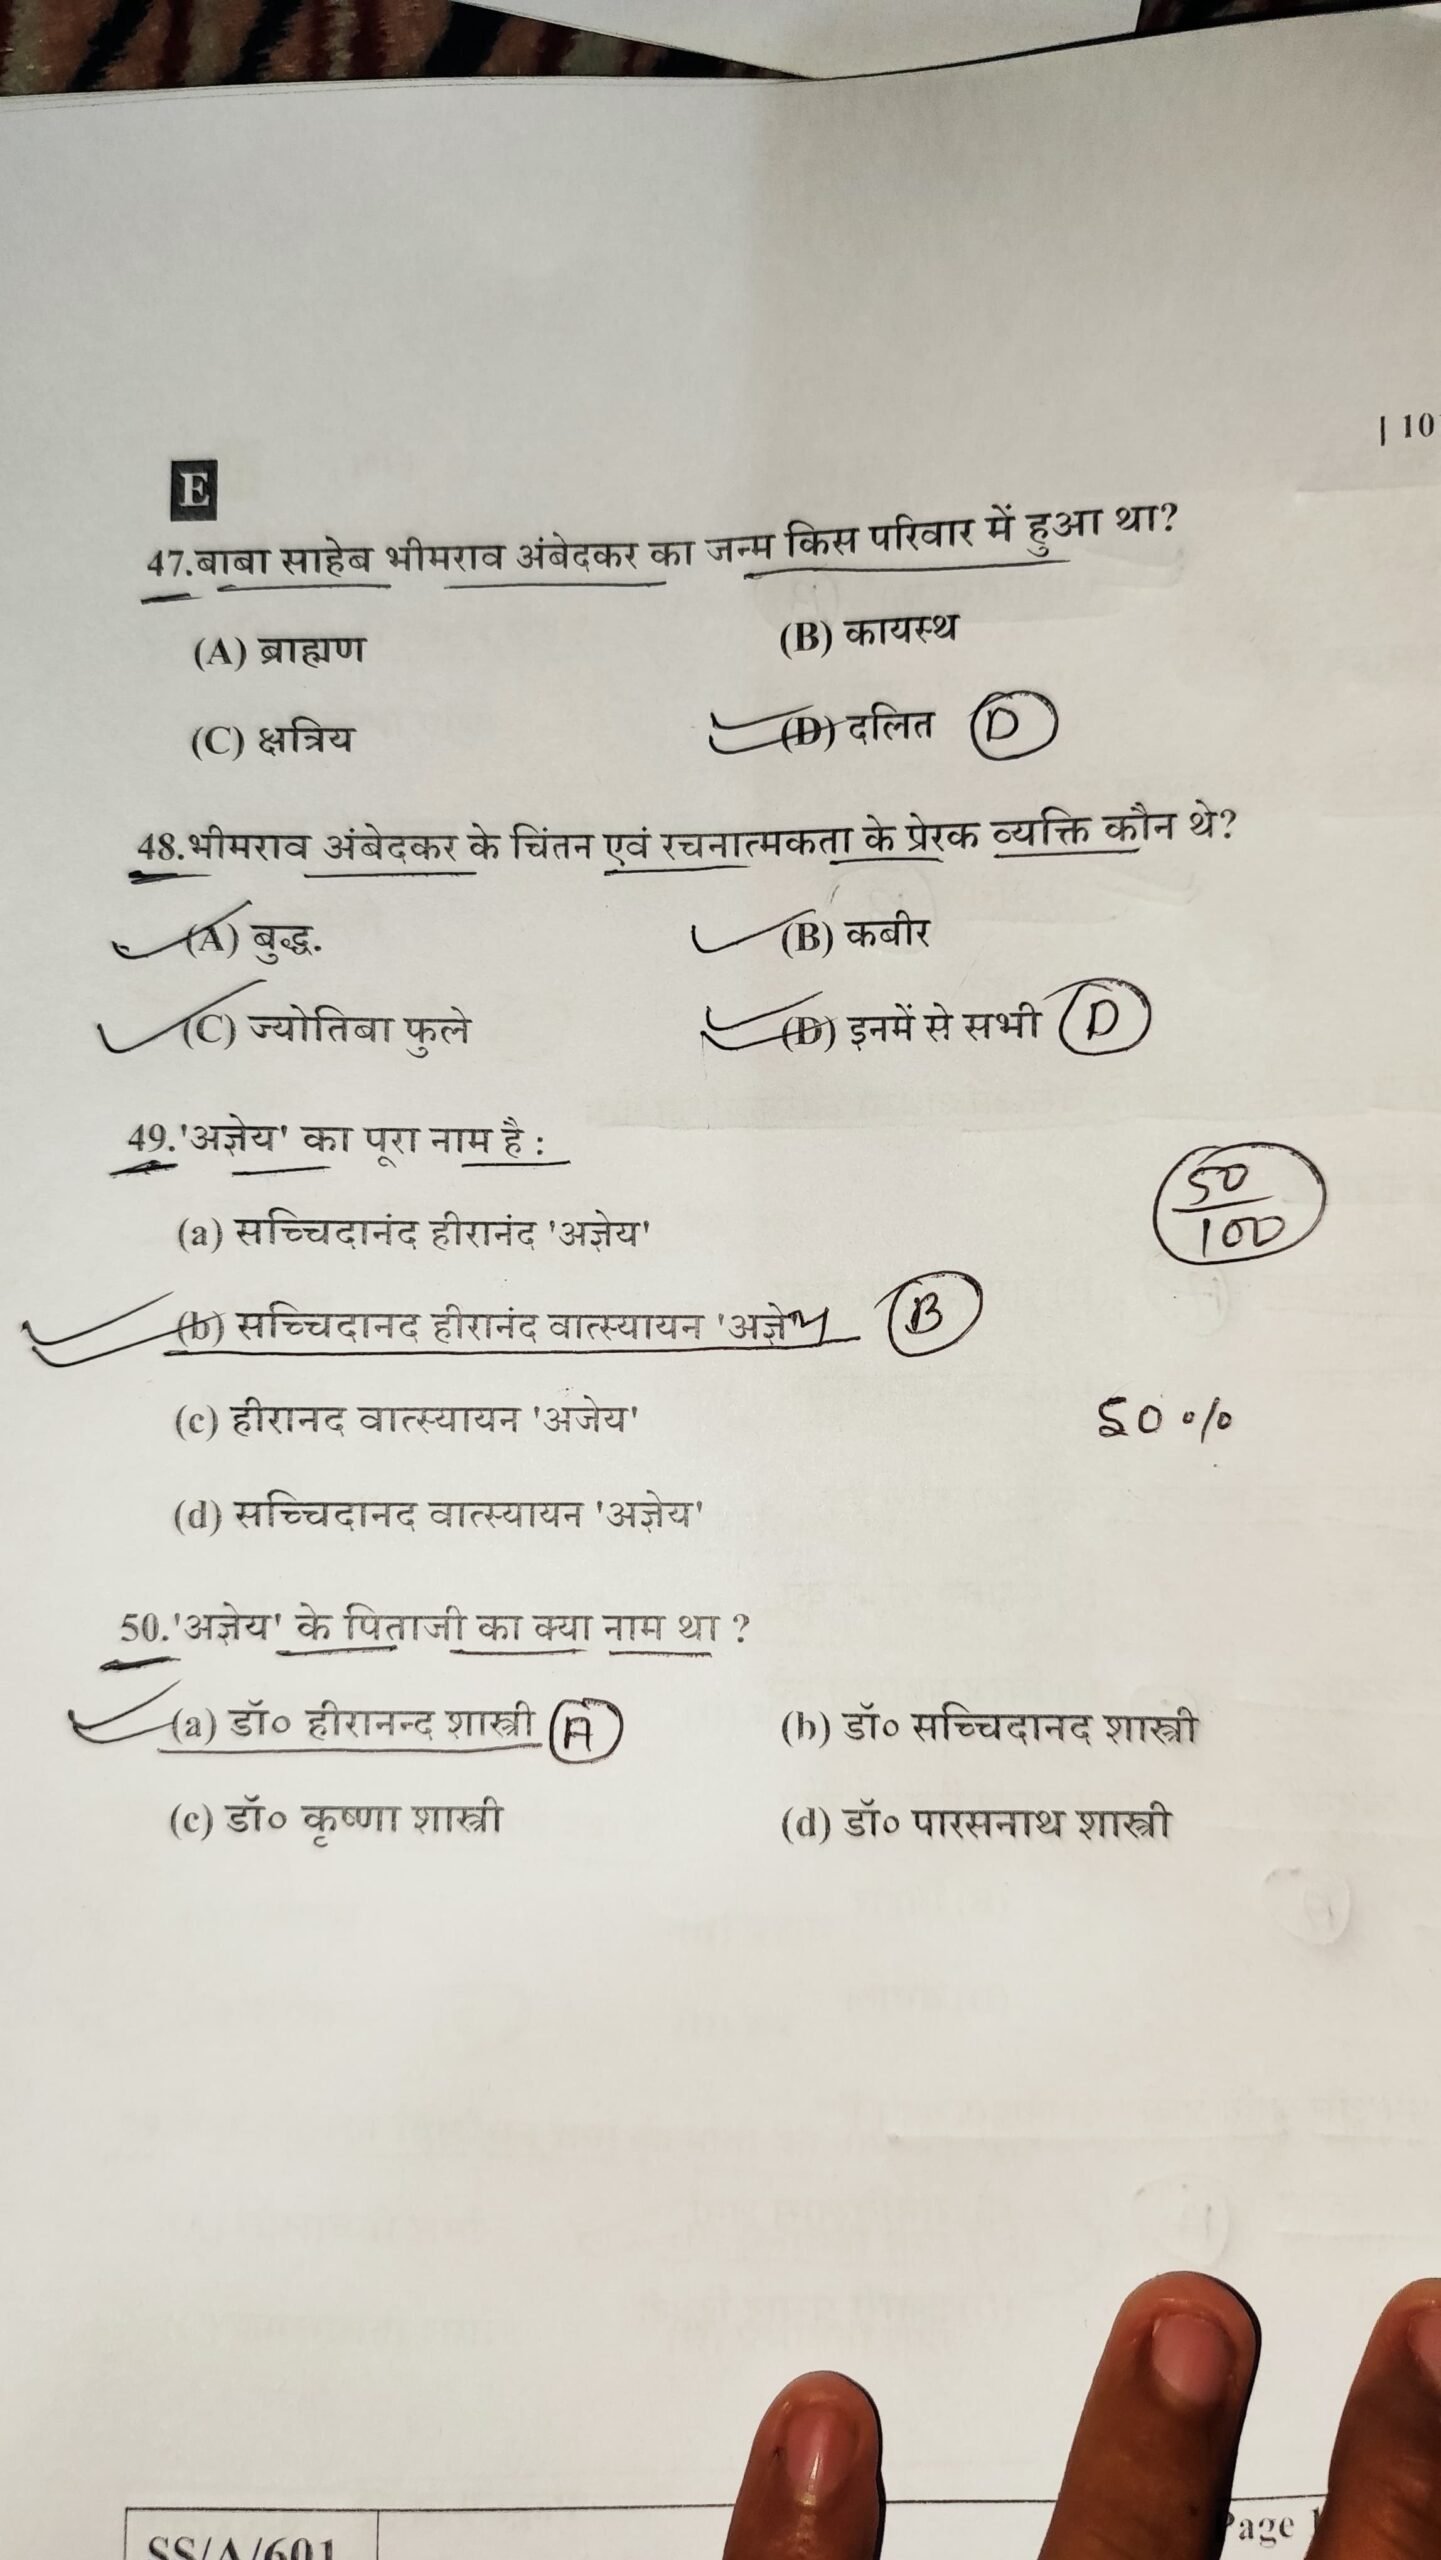 | 10
E
47.बाबा साहेब भीमराव अंबेदकर का जन्म किस परिवार में हुआ था?
(A) ब्राह्मण (B) कायस्थ
(C) क्षत्रिय (D) दलित D
48.भीमराव अंबेदकर के चिंतन एवं रचनात्मकता के प्रेरक व्यक्ति कौन थे?
(A) बुद्ध. (B) कबीर
(C) ज्योतिबा फुले (D) इनमें से सभी D
49.'अज्ञेय' का पूरा नाम है :
50/100
(a) सच्चिदानंद हीरानंद 'अज्ञेय'
(b) सच्चिदानद हीरानंद वात्स्यायन 'अज्ञेय B
(c) हीरानद वात्स्यायन 'अजेय' 50%
(d) सच्चिदानद वात्स्यायन 'अज्ञेय'
50.'अज्ञेय' के पिताजी का क्या नाम था ?
(a) डॉ० हीरानन्द शास्त्री A (b) डॉ० सच्चिदानद शास्त्री
(c) डॉ० कृष्णा शास्त्री (d) डॉ० पारसनाथ शास्त्री
SS/A/601 Page